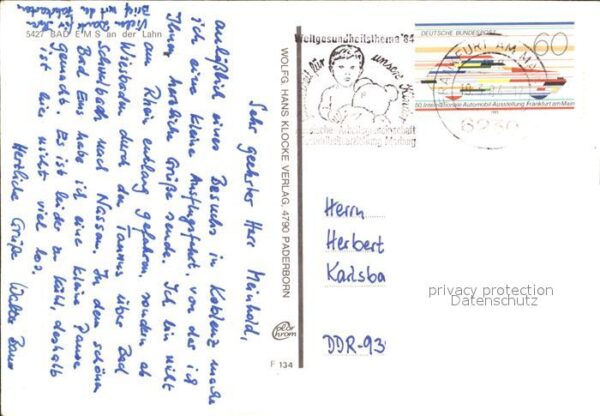 5427 BAD EMS an der Lahn
Sehr geehrter Herr Meinhold,
anläßlich eines Besuchs in Koblenz mache
ich eine kleine Ausflugsfahrt, von der ich
Ihnen herzliche Grüße sende. Ich bin nicht
am Rhein entlang gefahren, sondern ab
Wiesbaden durch den Taunus über Bad
Schwalbach nach Nassau. In dem schönen
Bad Ems habe ich eine kleine Pause
gemacht. Es ist leider zu kühl, deshalb
ist hier nicht viel los.
Herzliche Grüße Walter
WOLFG. HANS KLOCKE VERLAG, 4790 PADERBORN
color chrom
F 134
Weltgesundheitsthema '84
für unsere
DEUTSCHE BUNDESPOST
60
50. Internationale Automobil-Ausstellung Frankfurt am Main
FRANKFURT AM MAIN
6230
Herrn
Herbert
Karlsba
DDR-93
privacy protection
Datenschutz